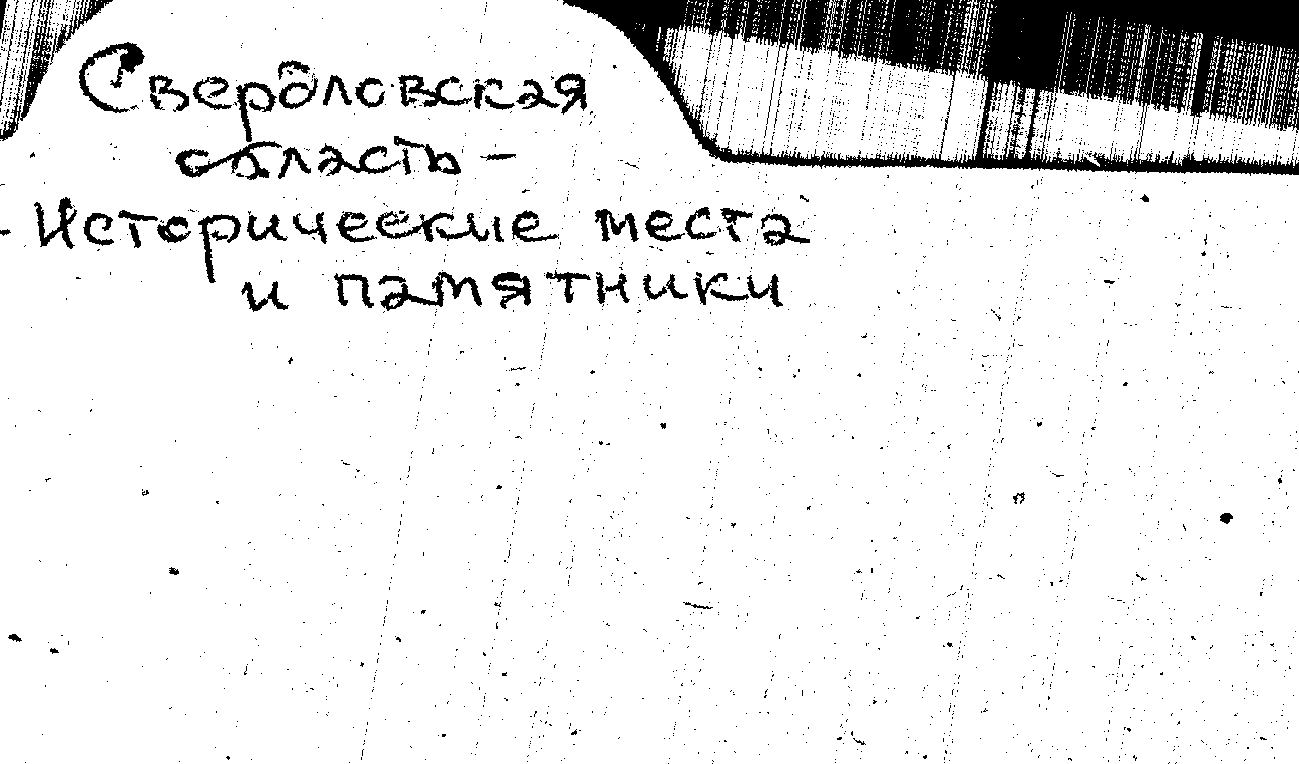 Свердловская
область -
- Исторические места
и памятники